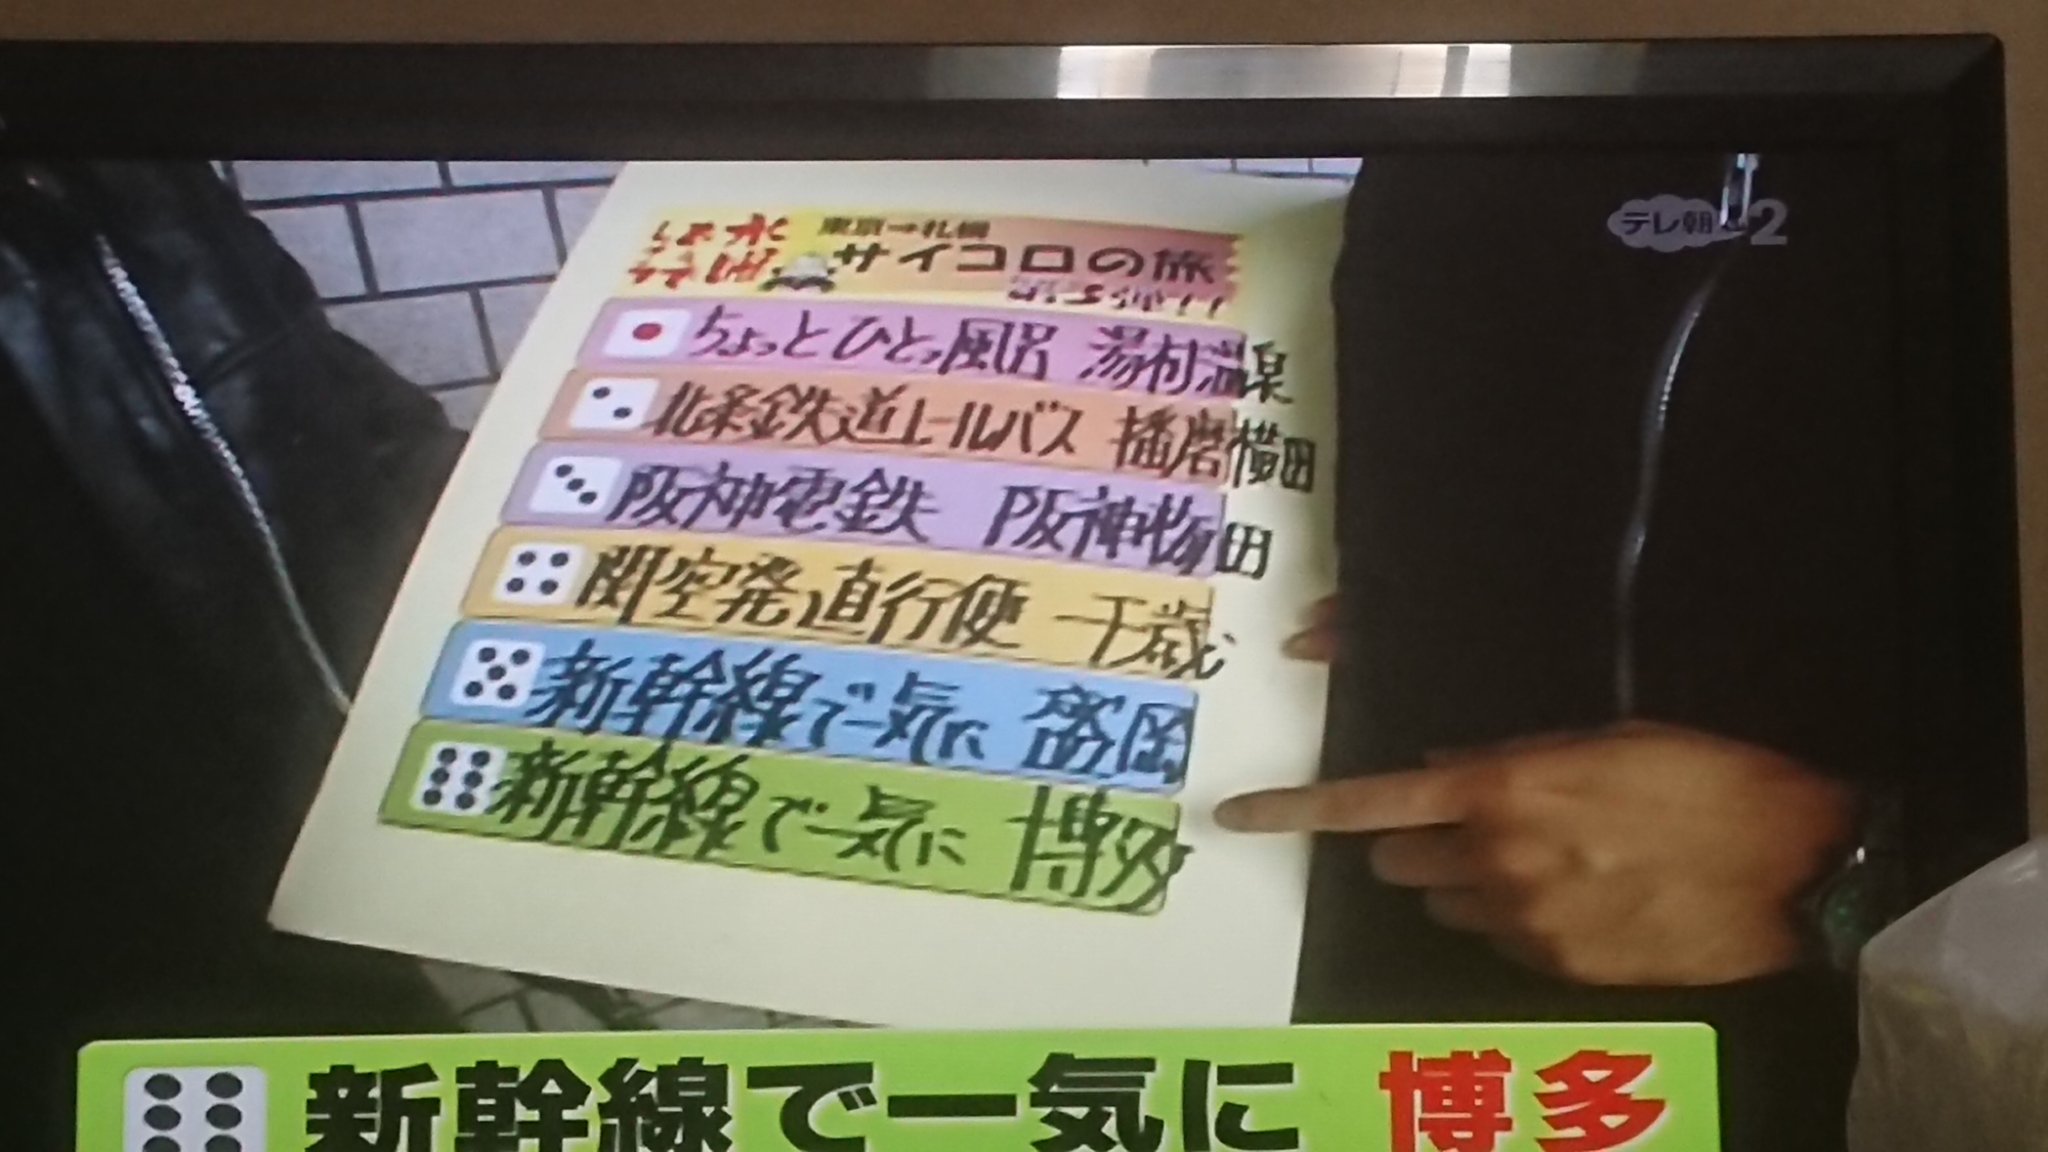 テレ朝 2
水曜
どう
でしょう
東京→札幌
サイコロの旅
ちょっとひとっ風呂 湯村温泉
北条鉄道レールバス 播磨横田
阪神電鉄 阪神物田
関空発直行便 千歳
新幹線で一気に 盛岡
新幹線で一気に 博多
新幹線で一気に 博多